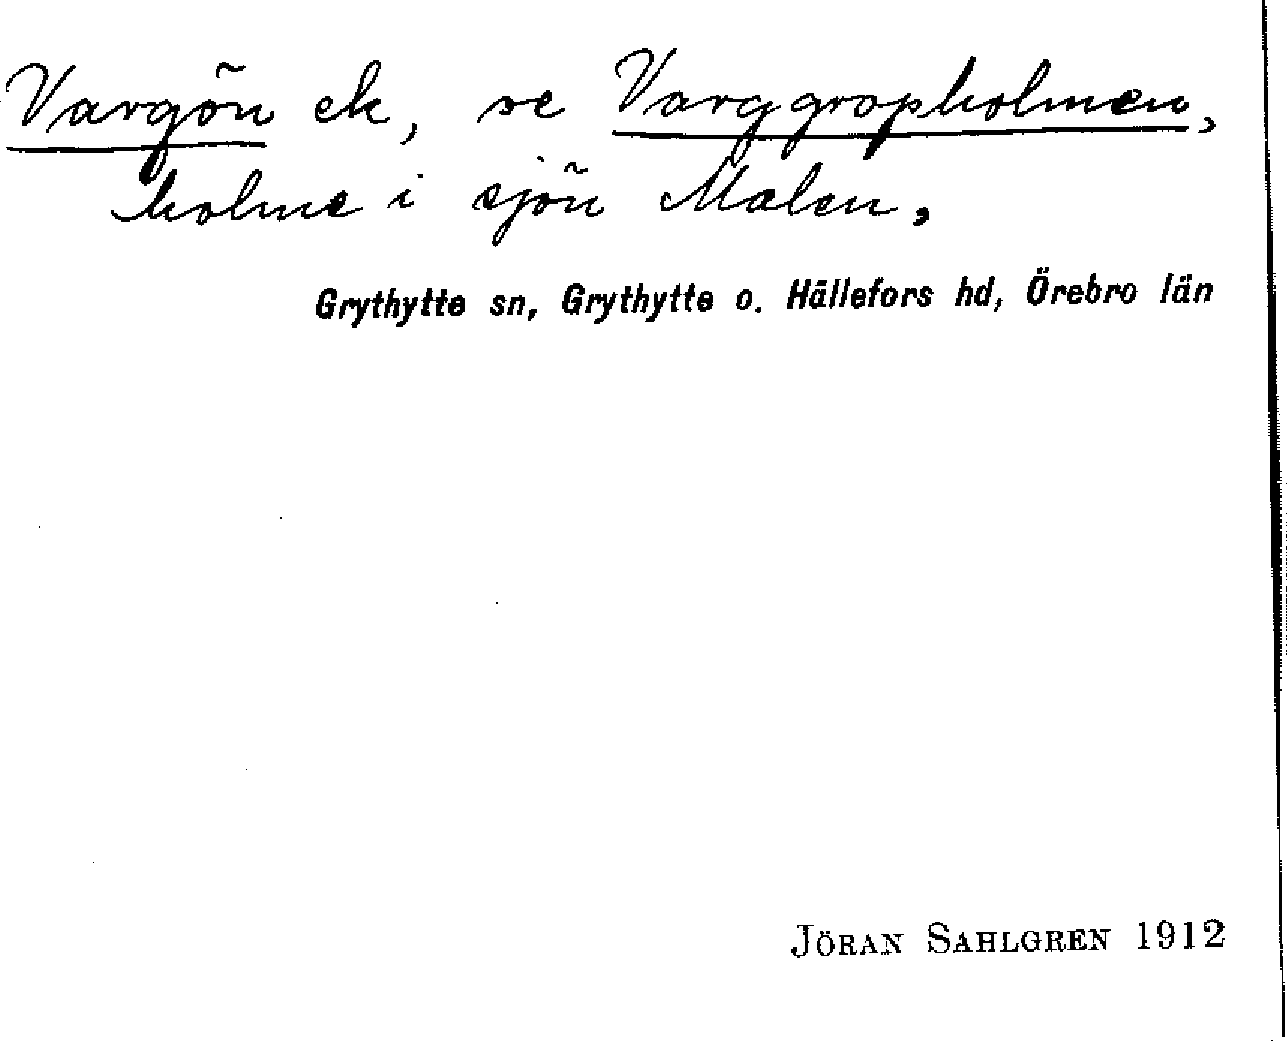 Vargön ek, se Varggropholmen,
holme i sjön Malen,
Grythytte sn, Grythytte o. Hällefors hd, Örebro län
JÖRAN SAHLGREN 1912